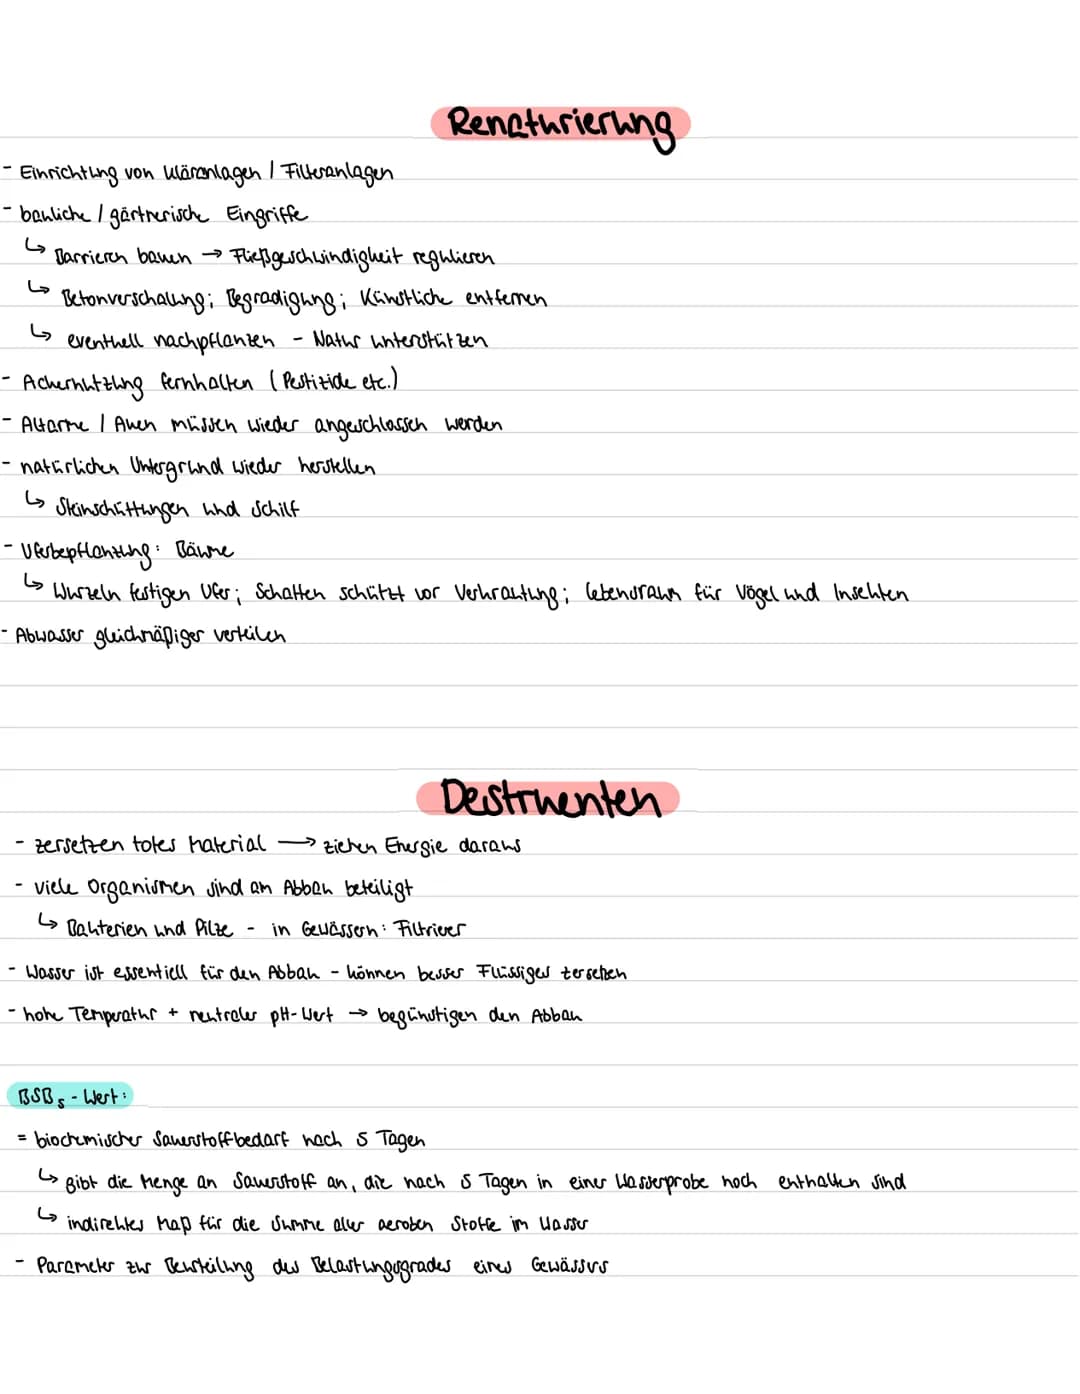 Renaturierung
- Einrichtung von Kläranlagen / Filteranlagen
- bauliche / gärtnerische Eingriffe
↳ Barrieren bauen → Fließgeschwindigkeit regulieren
↳ Betonverschalung; Begradigung; Künstliche entfernen
↳ eventuell nachpflanzen - Natur unterstützen
- Ackernutzung fernhalten (Pestizide etc.)
- Altarme / Auen müssen wieder angeschlossen werden
- natürlichen Untergrund wieder herstellen
↳ Steinschüttungen und Schilf
- Uferbepflanzung: Bäume
↳ Wurzeln festigen Ufer; Schatten schützt vor Verkrautung; Lebensraum für Vögel und Insekten
- Abwasser gleichmäßiger verteilen
Destruenten
- zersetzen totes Material → ziehen Energie daraus
- viele Organismen sind am Abbau beteiligt
↳ Bakterien und Pilze - in Gewässern: Filtrierer
- Wasser ist essentiell für den Abbau - können besser Flüssiges zersetzen
- hohe Temperatur + neutraler pH-Wert → begünstigen den Abbau
BSB₅-Wert:
= biochemischer Sauerstoffbedarf nach 5 Tagen
↳ gibt die Menge an Sauerstoff an, die nach 5 Tagen in einer Wasserprobe noch enthalten sind
↳ indirektes Maß für die Summe aller aeroben Stoffe im Wasser
- Parameter zur Beurteilung des Belastungsgrades eines Gewässers